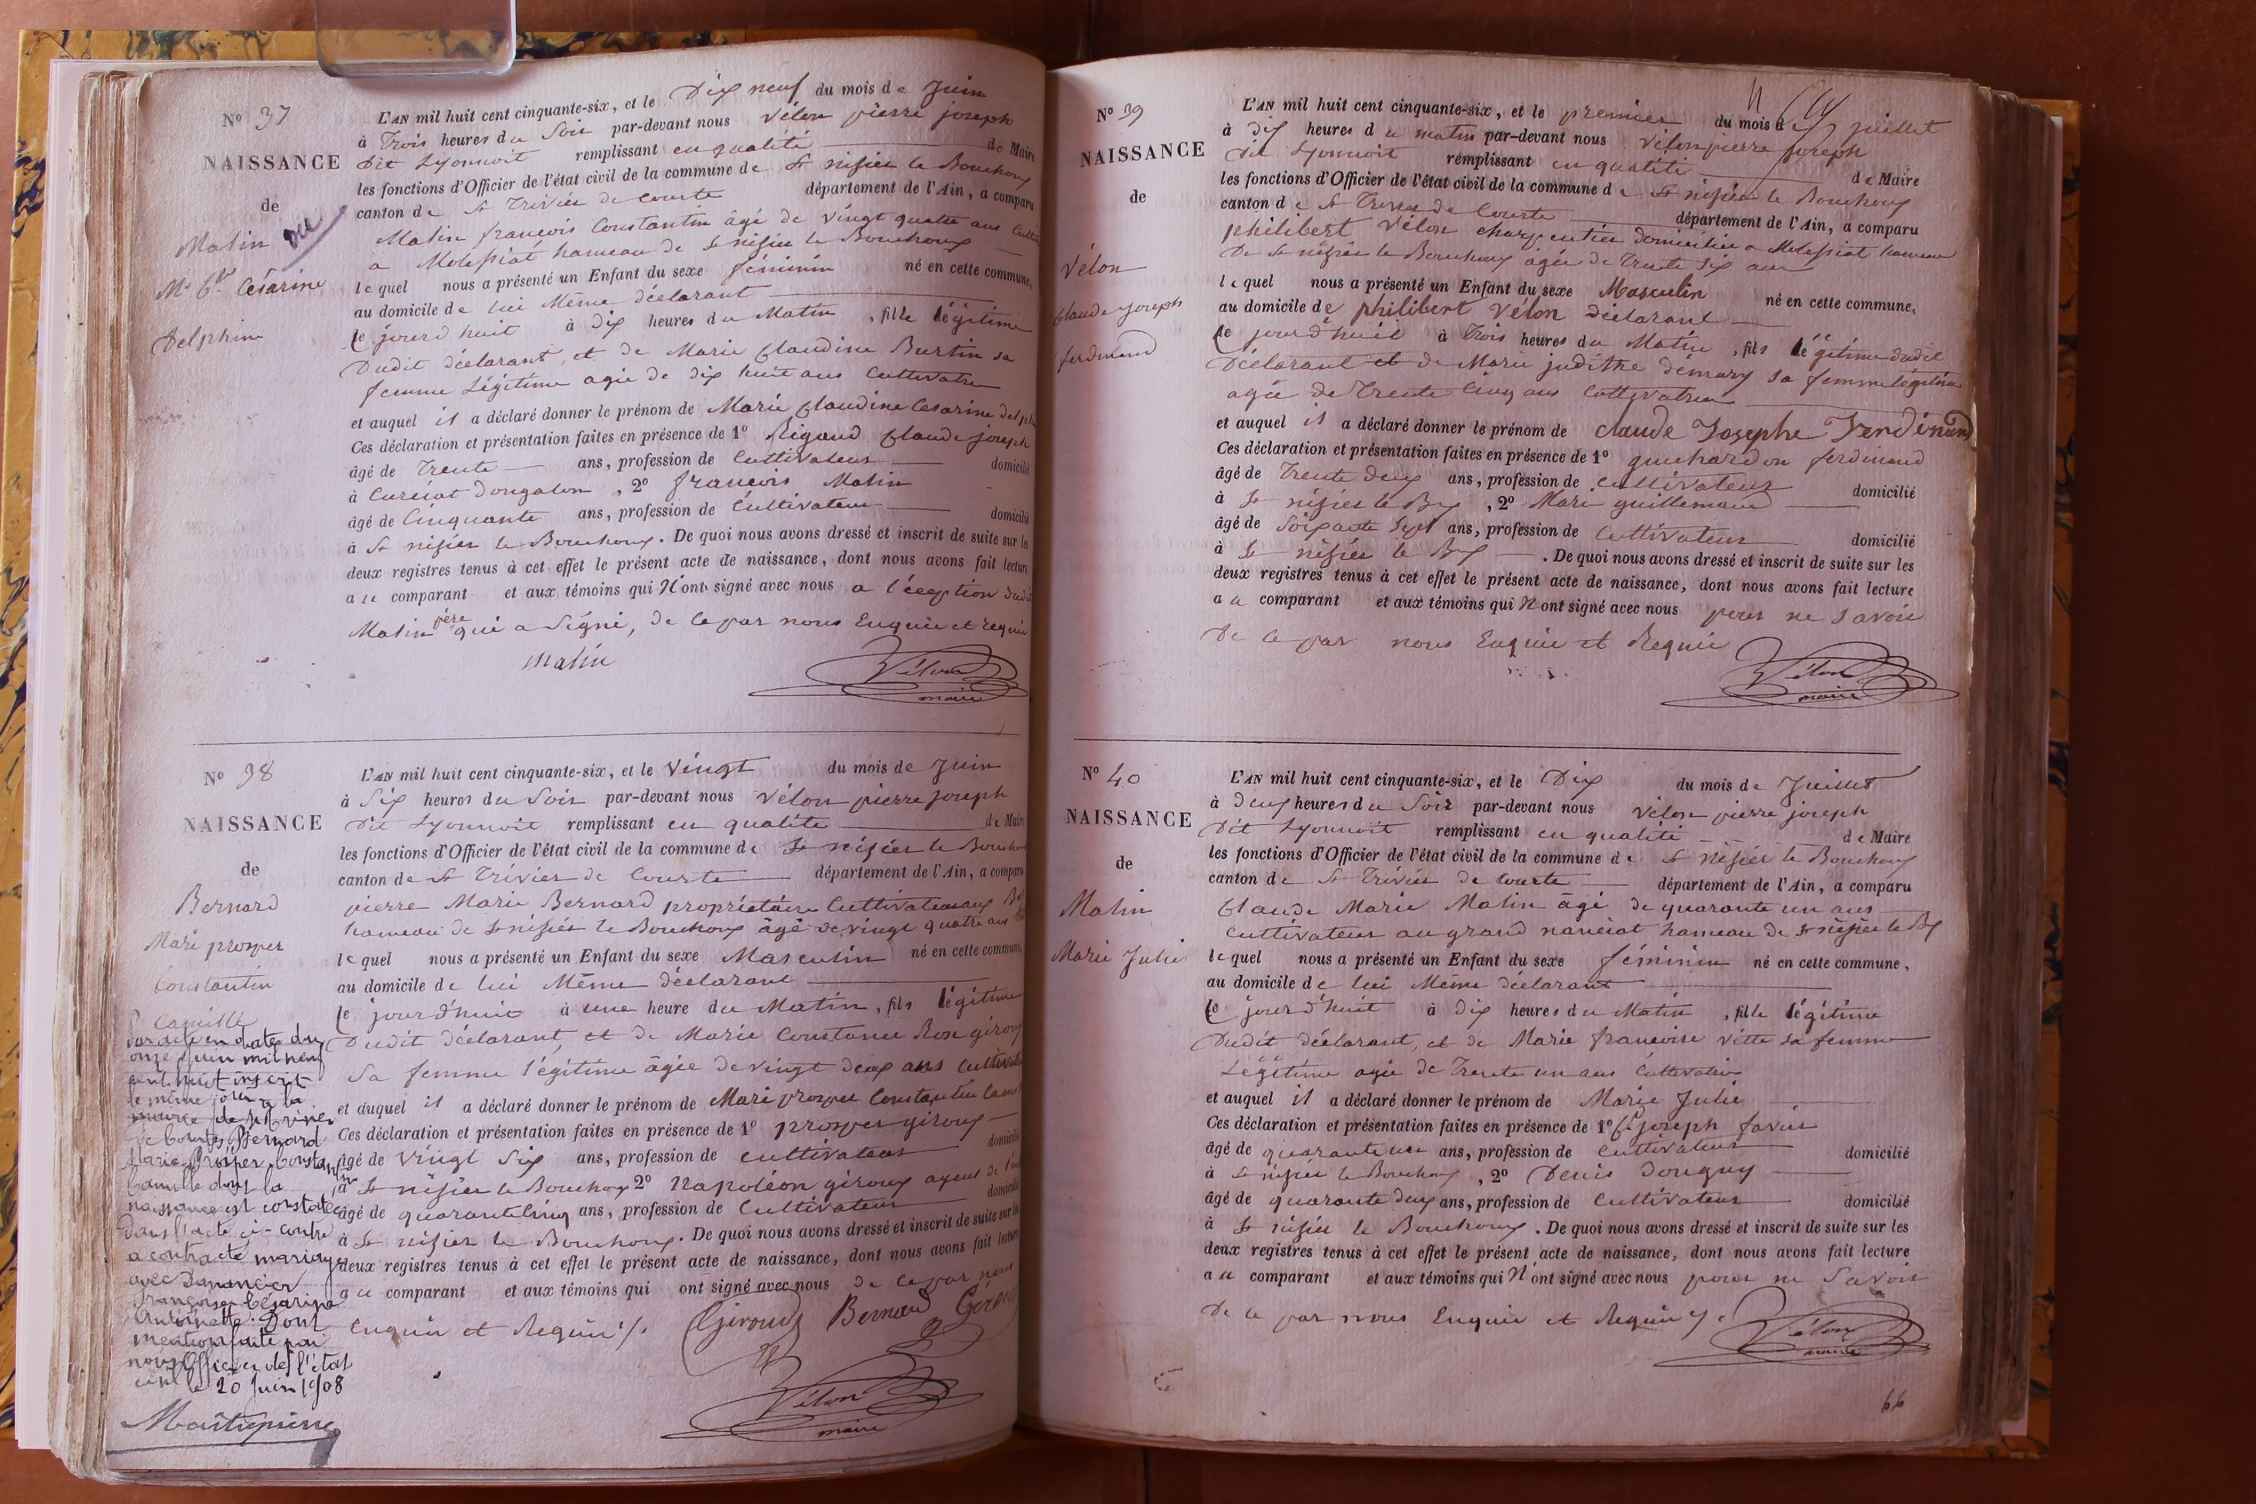 N° 37
NAISSANCE
de
Matin
Mie Cde Césarine
Delphine
L'AN mil huit cent cinquante-six, et le Dix neuf du mois de Juin
à Trois heures du Soir par-devant nous Vélon pierre joseph
dit Lyonnoit remplissant en qualité de Maire
les fonctions d'Officier de l'état civil de la commune de St nisier le Bouchoux
canton de St Trivier de Courte département de l'Ain, a comparu
Matin françois Constantin âgé de vingt quatre ans
a Molissiat hameau de St nisier le Bouchoux
lequel nous a présenté un Enfant du sexe féminin né en cette commune,
au domicile de lui Même déclarant
le jourd huit à dix heures du Matin, fille légitime
Dudit déclarant, et de Marie Claudine Burtin sa
femme Légitime agée de dix huit ans Cultivatrice
et auquel il a déclaré donner le prénom de Marie Claudine Césarine
Ces déclaration et présentation faites en présence de 1° Rigaud Claude joseph
âgé de Trente ans, profession de Cultivateur domicilié
à Curciat Dongalon, 2° francois Matin
âgé de Cinquante ans, profession de Cultivateur domicilié
à St nisier le Bouchoux. De quoi nous avons dressé et inscrit de suite sur les
deux registres tenus à cet effet le présent acte de naissance, dont nous avons fait lecture
au comparant et aux témoins qui N'ont signé avec nous a l'éception dudit
Matin père qui a Signé, de ce par nous Enquie et requie
Matin
Vélon
maire
N° 38
NAISSANCE
de
Bernard
Marie prosper
Constantin
Camille
L'AN mil huit cent cinquante-six, et le Vingt du mois de Juin
à Six heures du Soir par-devant nous Vélon pierre joseph
Dit Lyonnoit remplissant en qualité de Maire
les fonctions d'Officier de l'état civil de la commune de St nisier le Bouchoux
canton de St Trivier de Courte département de l'Ain, a comparu
pierre Marie Bernard propriétaire Cultivateur aux
hameau de St nisier le Bouchoux âgé de vingt quatre ans
lequel nous a présenté un Enfant du sexe Masculin né en cette commune,
au domicile de lui Même déclarant
le jourd'huit à une heure du Matin, fils légitime
Dudit déclarant, et de Marie Constance Rose giroux
Sa femme légitime âgée de vingt deux ans cultivatrice
et auquel il a déclaré donner le prénom de Marie prosper Constantin
Ces déclaration et présentation faites en présence de 1° prosper giroux
âgé de vingt Six ans, profession de cultivateur domicilié
à St nisier le Bouchoux 2° Napoléon giroux
âgé de quarante Cinq ans, profession de Cultivateur domicilié
à St nisier le Bouchoux. De quoi nous avons dressé et inscrit de suite sur les
deux registres tenus à cet effet le présent acte de naissance, dont nous avons fait lecture
au comparant et aux témoins qui ont signé avec nous de ce par nous
Enquie et Requie ./.
Giroux Bernard
Vélon
maire
Par acte en date du
onze Juin mil neuf
cent huit inscrit
le même jour à la
mairie de St Trivier
de Courtes, Bernard
Marie Prosper Constantin
Camille dont la
naissance est constatée
dans l'acte ci-contre
a contracté mariage
avec Danancier
Françoise Césarine
Antoinette. Dont
mention faite par
nous Officier de l'état
civil le 20 Juin 1908
N° 39
NAISSANCE
de
Vélon
Claude Joseph
ferdinand
L'AN mil huit cent cinquante-six, et le premier du mois de Juillet
à dix heures du matin par-devant nous Vélon pierre Joseph
Dit Lyonnoit remplissant en qualité de Maire
les fonctions d'Officier de l'état civil de la commune de St nisier le Bouchoux
canton de St Trivier de Courte département de l'Ain, a comparu
philibert Vélon charpentier domicilié a Molissiat hameau
De St nisier le Bouchoux agée de Trente Six ans
lequel nous a présenté un Enfant du sexe Masculin né en cette commune,
au domicile de philibert Vélon déclarant
le jourd'huit à Trois heures du Matin, fils légitime dudit
Déclarant et de Marie judithe démary sa femme légitime
agée de Trente Cinq ans Cultivatrice
et auquel il a déclaré donner le prénom de Claude Josephe Ferdinand
Ces déclaration et présentation faites en présence de 1° guichardon ferdinand
âgé de Trente deux ans, profession de Cultivateur domicilié
à St nisier le Bx, 2° Marie guillemaud
âgé de Soixante Sept ans, profession de Cultivateur domicilié
à St nisier le Bx. De quoi nous avons dressé et inscrit de suite sur les
deux registres tenus à cet effet le présent acte de naissance, dont nous avons fait lecture
au comparant et aux témoins qui N'ont signé avec nous pour ne Savoir
De ce par nous Enquie et Requie
Vélon
maire
N° 40
NAISSANCE
de
Matin
Marie Julie
L'AN mil huit cent cinquante-six, et le Dix du mois de Juillet
à deux heures du Soir par-devant nous Vélon pierre joseph
Dit Lyonnoit remplissant en qualité de Maire
les fonctions d'Officier de l'état civil de la commune de St nisier le Bouchoux
canton de St Trivier de Courte département de l'Ain, a comparu
Claude Marie Matin âgé de quarante un ans
Cultivateur au grand nanciat hameau de St nisier le Bx
lequel nous a présenté un Enfant du sexe féminin né en cette commune,
au domicile de lui Même déclarant
le jourd'huit à dix heures du Matin, fille légitime
Dudit déclarant, et de Marie francoise vitte sa femme
Légitime agée de Trente un ans Cultivatrice
et auquel il a déclaré donner le prénom de Marie Julie
Ces déclaration et présentation faites en présence de 1° Cde joseph favier
âgé de quarante un ans, profession de Cultivateur domicilié
à St nisier le Bouchoux, 2° Denis Donguy
âgé de quarante deux ans, profession de Cultivateur domicilié
à St nisier le Bouchoux. De quoi nous avons dressé et inscrit de suite sur les
deux registres tenus à cet effet le présent acte de naissance, dont nous avons fait lecture
au comparant et aux témoins qui N'ont signé avec nous pour ne Savoir
De ce par nous Enquie et Requie
Vélon
maire
66